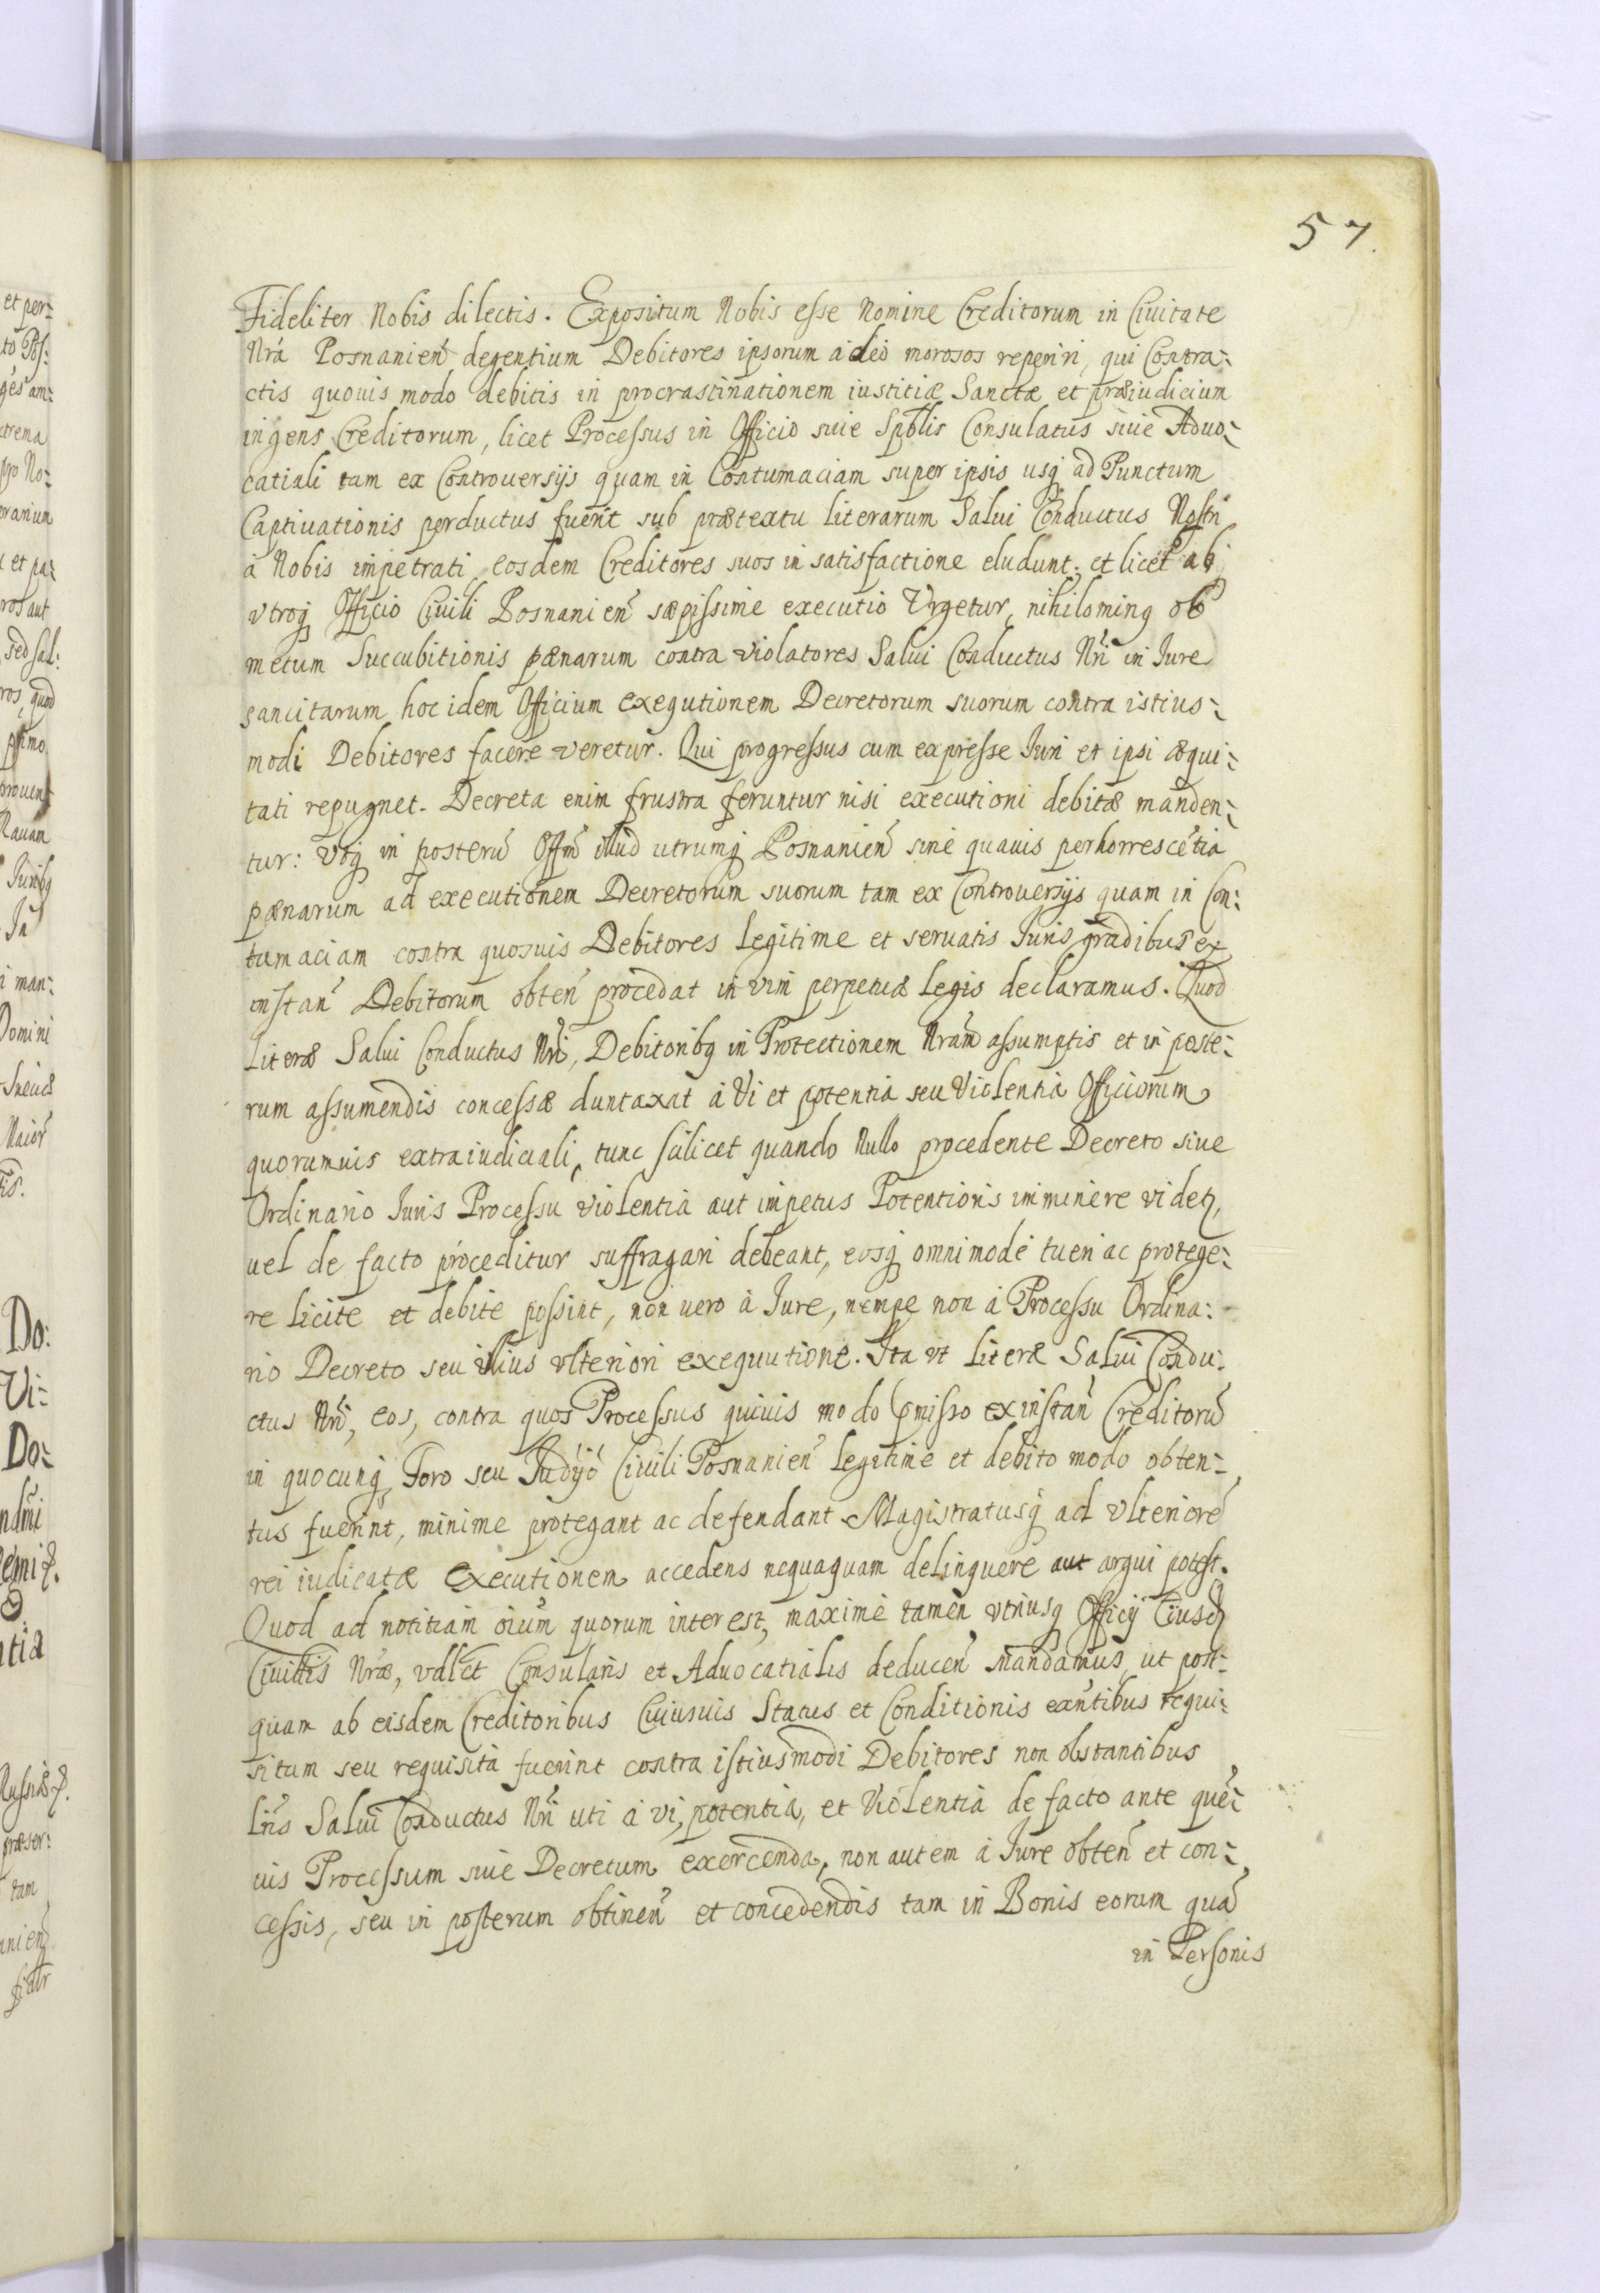 57.
Fideliter Nobis dilectis. Expositum Nobis esse Nomine Creditorum in Ciuitate
Nrã Posnanien̄ degentium Debitores ipsorum adeò morosos reperiri, qui Contra:
ctis quouis modo debitis in procrastinationem iustitiæ Sanctæ et præiudicium
ingens Creditorum, licet Processus in Officio siue Spblis Consulatus siue Aduo:
catiali tam ex Controuersijs quam in Contumaciam super ipsis usq ad Punctum
Captiuationis perductus fuerit sub prætextu literarum Salui Conductus Nostri
à Nobis impetrati, eosdem Creditores suos in satisfactione eludunt, et licet ab
vtroq Officio Ciuili Posnanien̄ sæpissime executio Vrgetur, nihilominq ob
metum Succubitionis pænarum contra violatores Salui Conductus Nri in Iure
sancitarum hoc idem Officium exequtionem Decretorum suorum contra istius:
modi Debitores facere veretur. Qui progressus cum expresse Iuri et ipsi æqui:
tati repugnet. Decreta enim frustra feruntur nisi executioni debitæ manden:
tur: Vtq in posterū Offm̄ illud utrumq Posnanien̄ sine quauis perhorrescētia
pænarum ad executionem Decretorum suorum tam ex Controuersijs quam in Con:
tumaciam contra quosuis Debitores legitime et seruatis Iuris gradibus ex
instan̄ Debitorum obten̄ procedat in vim perpetuæ legis declaramus. Quod
Literæ Salui Conductus Nri, Debitoribq in Protectionem Nram assumptis et in poste:
rum assumendis concessæ duntaxat à Vi et potentia seu Violentia Officiorum
quorumuis extraiudiciali, tunc scilicet quando Nullo procedente Decreto siue
Ordinario Iuris Processu violentia aut impetus Potentioris imminere videt,
uel de facto proceditur suffragari debeant, eosq omnimode tueri ac protege:
re licite et debite possint, non uero à Iure, nempe non à Processu Ordina:
rio Decreto seu illius vlteriori exequutione. Ita vt literæ Salui Condu:
ctus Nri, eos, contra quos Processus quiuis modo pmisso ex instan̄ Creditorū
in quocunq Foro seu Judijo Ciuili Posnanien̄ legitime et debito modo obten:
tus fuerint, minime protegant ac defendant Magistratusq ad vlteriorē
rei iudicatæ executionem accedens nequaquam delinquere aut argui potest.
Quod ad notitiam oium quorum interest, maxime tamen vtriusq Officij Eiusd
Ciuittis Nræ, vdlct Consularis et Aduocatialis deducen̄ Mandamus, ut post:
quam ab eisdem Creditoribus Cuiusuis Status et Conditionis exn̄tibus requi:
situm seu requisita fuerint contra istiusmodi Debitores non obstantibus
lris Salui Conductus Nri uti à vi, potentia, et Violentia de facto ante quē:
uis Processum siue Decretum exercenda, non autem à Iure obten̄ et con:
cessis, seu in posterum obtinen̄ et concedendis tam in Bonis eorum quā
in Personis